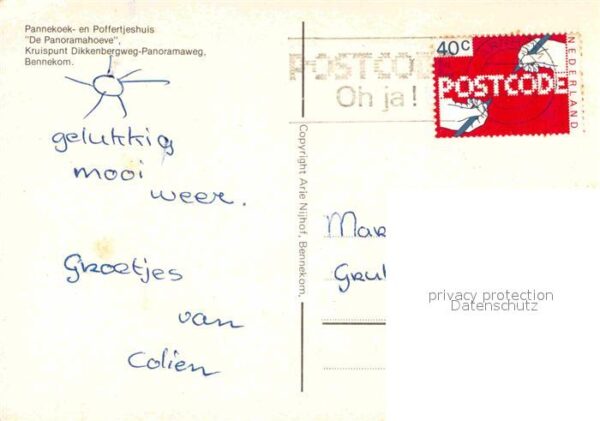 Pannekoek- en Poffertjeshuis
"De Panoramahoeve",
Kruispunt Dikkenbergweg-Panoramaweg,
Bennekom.
gelukkig
mooi
weer.
Groetjes
van
Colien
Copyright Arie Nijhof, Bennekom.
POSTCOD
Oh ja!
40c
POSTCODE
NEDERLAND
Mar
privacy protection
Datenschutz